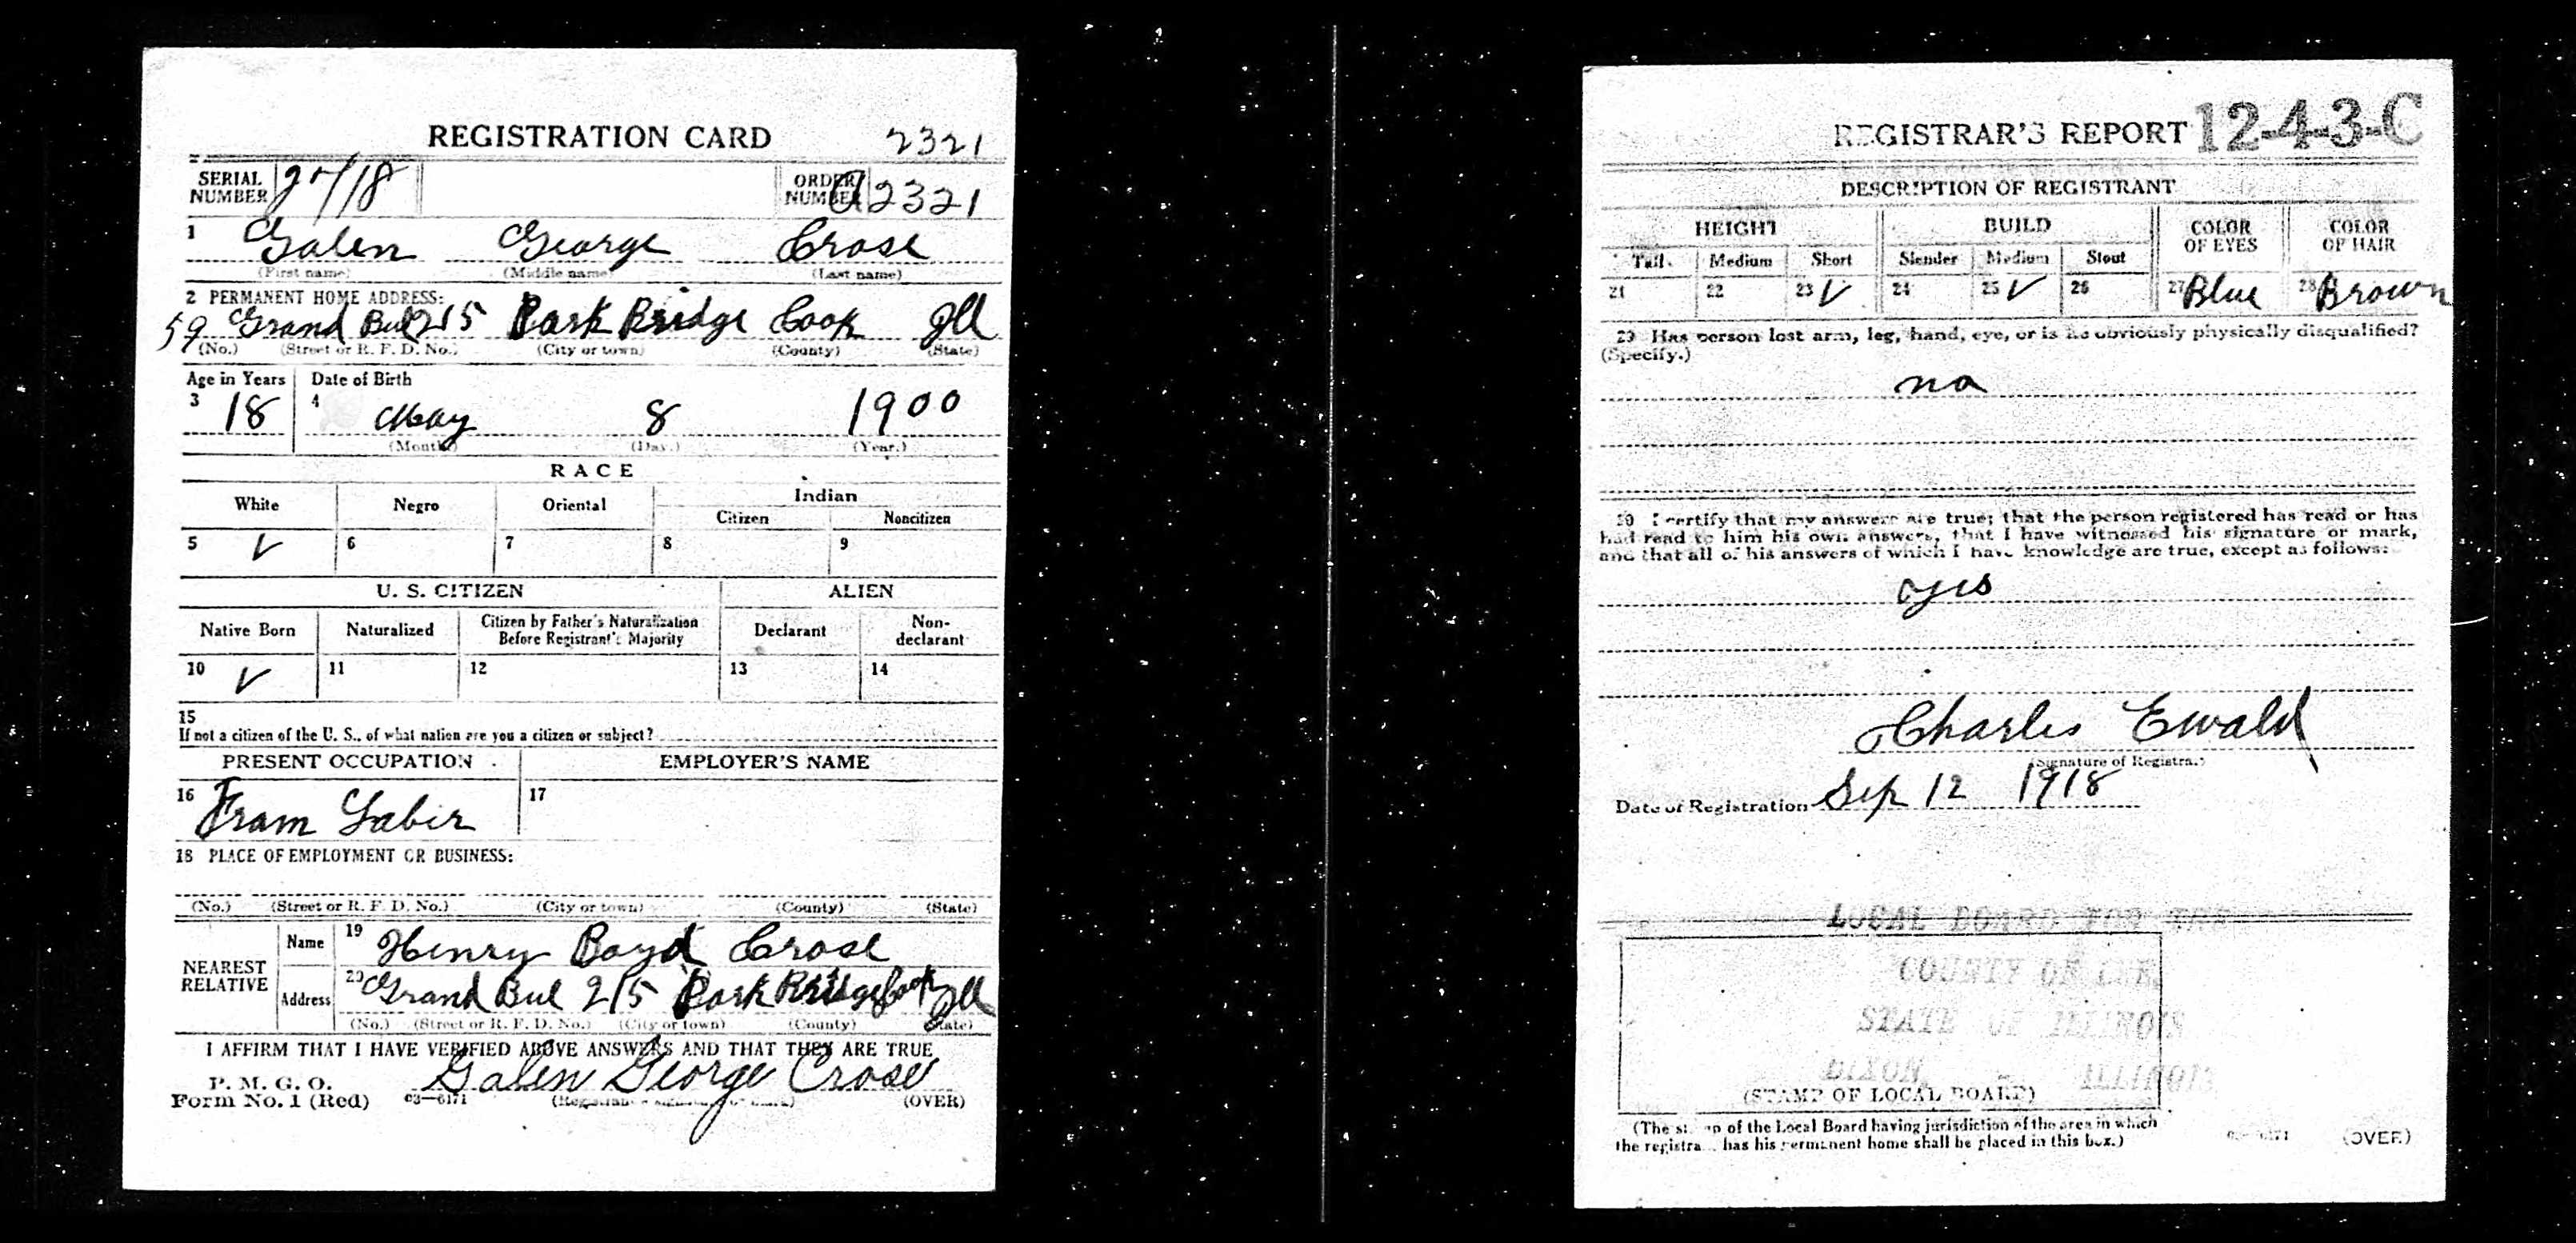 REGISTRATION CARD 2321
SERIAL NUMBER ORDER NUMBER A2321
1 Galen George Crose
(First name) (Middle name) (Last name)
2 PERMANENT HOME ADDRESS:
59 Grand Bul 215 Park Ridge Cook Ill
(No.) (Street or R. F. D. No.) (City or town) (County) (State)
Age in Years Date of Birth
3 18 4 May 8 1900
(Month) (Day.) (Year.)
RACE
White Negro Oriental Indian
Citizen Noncitizen
5 ✓ 6 7 8 9
U. S. CITIZEN ALIEN
Native Born Naturalized Citizen by Father's Naturalization Before Registrant's Majority Declarant Non-declarant
10 ✓ 11 12 13 14
15
If not a citizen of the U. S., of what nation are you a citizen or subject?
PRESENT OCCUPATION EMPLOYER'S NAME
16 Fram Laber 17
18 PLACE OF EMPLOYMENT OR BUSINESS:
(No.) (Street or R. F. D. No.) (City or town) (County) (State)
NEAREST RELATIVE Name 19 Henry Boyd Crose
Address 20 Grand Bul 215 Park Ridge Cook Ill
(No.) (Street or R. F. D. No.) (City or town) (County) (State)
I AFFIRM THAT I HAVE VERIFIED ABOVE ANSWERS AND THAT THEY ARE TRUE
P. M. G. O. Galen George Crose
Form No. 1 (Red) 03—6171 (Registrant's signature or mark) (OVER)
REGISTRAR'S REPORT 12-4-3-C
DESCRIPTION OF REGISTRANT
HEIGHT BUILD COLOR OF EYES COLOR OF HAIR
Tall Medium Short Slender Medium Stout
21 22 23 ✓ 24 25 ✓ 26 27 Blue 28 Brown
29 Has person lost arm, leg, hand, eye, or is he obviously physically disqualified?
(Specify.)
no
30 I certify that my answers are true; that the person registered has read or has
had read to him his own answers, that I have witnessed his signature or mark,
and that all of his answers of which I have knowledge are true, except as follows:
yes
Charles Ewald
(Signature of Registrar)
Date of Registration Sep 12 1918
LOCAL BOARD FOR THE
COUNTY OF LEE
STATE OF ILLINOIS
DIXON, - ILLINOIS
(STAMP OF LOCAL BOARD)
(The stamp of the Local Board having jurisdiction of the area in which
the registrant has his permanent home shall be placed in this box.)
03—6171 (OVER)